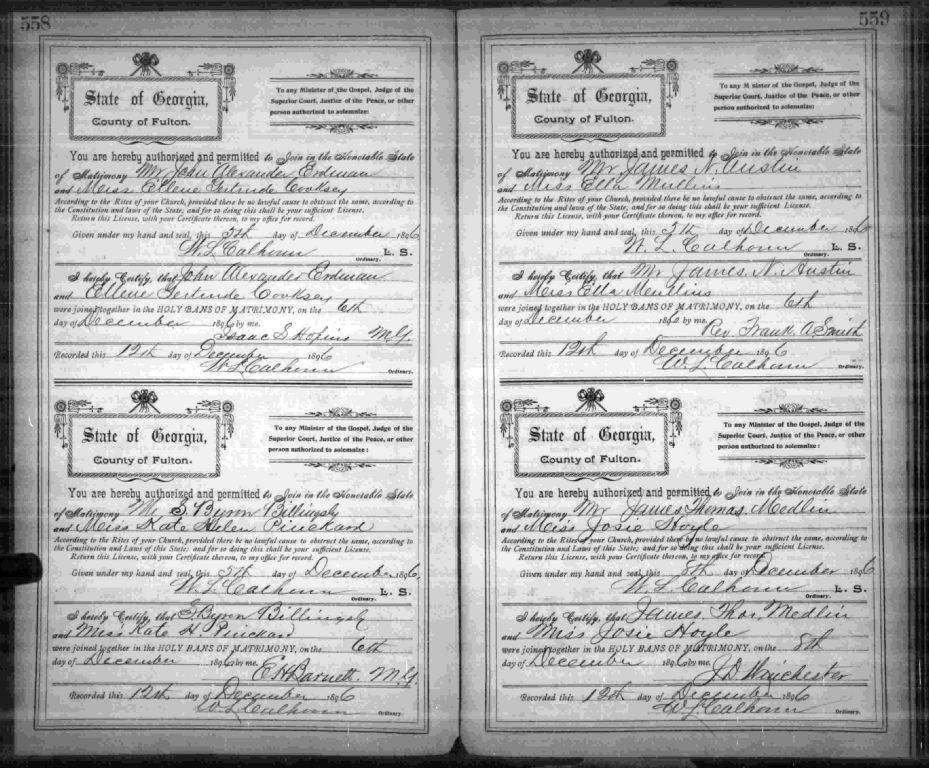 558
State of Georgia,
County of Fulton.
To any Minister of the Gospel, Judge of the
Superior Court, Justice of the Peace, or other
person authorized to solemnize:
You are hereby authorized and permitted to Join in the Honorable State
of Matrimony Mr John Alexander Erdman
and Miss Ellene Gertrude Cooksey
According to the Rites of your Church, provided there be no lawful cause to obstruct the same, according to
the Constitution and laws of the State, and for so doing this shall be your sufficient License.
Return this License, with your Certificate thereon, to my office for record.
Given under my hand and seal, this 5th day of December 1896
W. L. Calhoun L. S.
Ordinary.
I hereby Certify, that John Alexander Erdman
and Ellene Gertrude Cooksey
were joined together in the HOLY BANS OF MATRIMONY, on the 6th
day of December 1896 by me.
Isaac S Hopkins M.G.
Recorded this 12th day of December 1896
W L Calhoun Ordinary.
State of Georgia,
County of Fulton.
To any Minister of the Gospel, Judge of the
Superior Court, Justice of the Peace, or other
person authorized to solemnize:
You are hereby authorized and permitted to Join in the Honorable State
of Matrimony Mr S. Byrn Billingsly
and Miss Kate Helen Pinckard
According to the Rites of your Church, provided there be no lawful cause to obstruct the same, according to
the Constitution and Laws of this State; and for so doing this shall be your sufficient License.
Return this License, with your Certificate thereon, to my office for record.
Given under my hand and seal, this 5th day of December 1896
W. L. Calhoun L. S.
Ordinary.
I hereby Certify, that S. Byrn Billingsly
and Miss Kate H Pinckard
were joined together in the HOLY BANS OF MATRIMONY, on the 6th
day of December 1896 by me.
E H Barnett. M.G.
Recorded this 12th day of December 1896
W L Calhoun Ordinary.
559
State of Georgia,
County of Fulton.
To any Minister of the Gospel, Judge of the
Superior Court, Justice of the Peace, or other
person authorized to solemnize:
You are hereby authorized and permitted to Join in the Honorable State
of Matrimony Mr James N. Austin
and Miss Ella Mullins
According to the Rites of your Church, provided there be no lawful cause to obstruct the same, according to
the Constitution and laws of the State, and for so doing this shall be your sufficient License.
Return this License, with your Certificate thereon, to my office for record.
Given under my hand and seal, this 5th day of December 1896
W. L. Calhoun L. S.
Ordinary.
I hereby Certify, that Mr James. N. Austin
and Miss Ella Mullins
were joined together in the HOLY BANS OF MATRIMONY, on the 6th
day of December 189 by me.
Rev. Frank. A. Smith
Recorded this 12th. day of December 1896
W. L. Calhoun
Ordinary.
State of Georgia,
County of Fulton.
To any Minister of the Gospel, Judge of the
Superior Court, Justice of the Peace, or other
person authorized to solemnize:
You are hereby authorized and permitted to Join in the Honorable State
of Matrimony Mr James Thomas Medlin
and Miss Josie Hoyle
According to the Rites of your Church, provided there be no lawful cause to obstruct the same, according to
the Constitution and Laws of this State; and for so doing this shall be your sufficient License.
Return this License, with your Certificate thereon, to my office for record.
Given under my hand and seal, this 8th day of December 1896
W. L. Calhoun L. S.
Ordinary.
I hereby Certify, that James. Thos. Medlin
and Miss Josie Hoyle
were joined together in the HOLY BANS OF MATRIMONY, on the 8th
day of December 1896 by me.
J D Winchester
Recorded this 12th day of December 1896
W L Calhoun Ordinary.